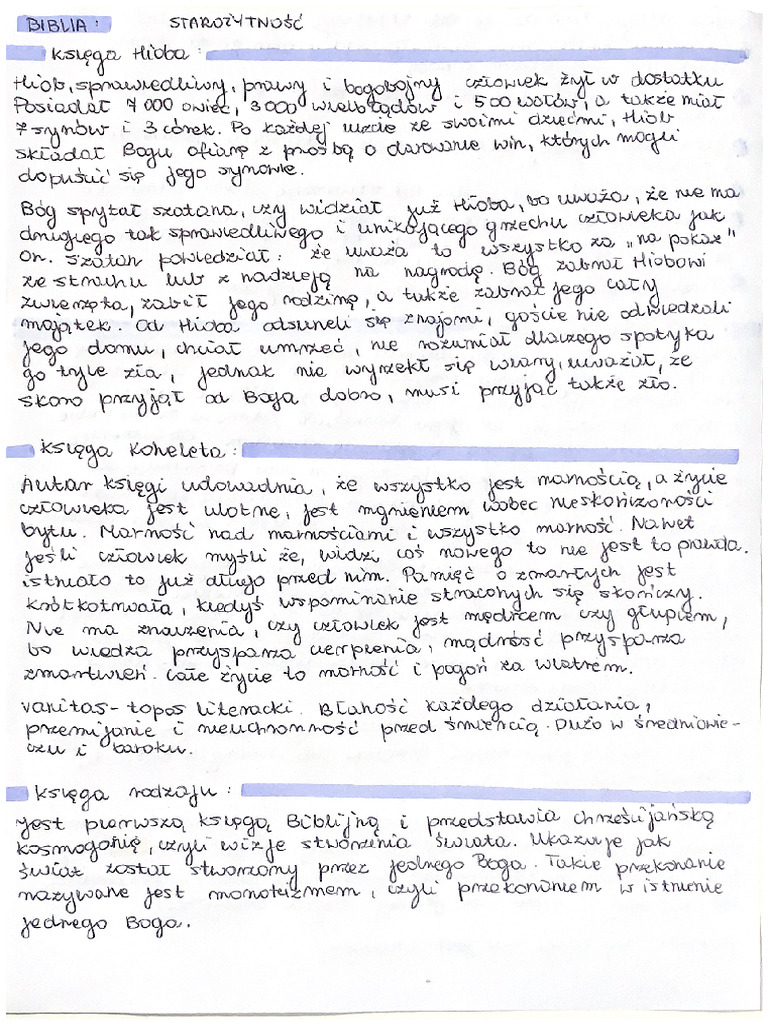 BIBLIA: STAROŻYTNOŚĆ
Księga Hioba:
Hiob, sprawiedliwy, prawy i bogobojny człowiek żył w dostatku
Posiadał 7 000 owiec, 3 000 wielbłądów i 500 wołów, a także miał
7 synów i 3 córek. Po każdej uczcie ze swoimi dziećmi, Hiob
składał Bogu ofiarę z prośbą o darowanie win, których mogli
dopuścić się jego synowie.
Bóg spytał szatana, czy widział już Hioba, bo uważa, że nie ma
drugiego tak sprawiedliwego i unikającego grzechu człowieka jak
on. Szatan powiedział: że uważa to wszystko za „na pokaz”
ze strachu lub z nadzieją na nagrodę. Bóg zabrał Hiobowi
zwierzęta, zabił jego rodzinę, a także zabrał jego cały
majątek. Od Hioba odsuneli się znajomi, goście nie odwiedzali
jego domu, chciał umrzeć, nie rozumiał dlaczego spotyka
go tyle zła, jednak nie wyrzekł się wiary, uważał, że
skoro przyjął od Boga dobro, musi przyjąć także zło.
Księga Koheleta:
Autor księgi udowadnia, że wszystko jest marnością, a życie
człowieka jest ulotne, jest mgnieniem wobec nieskończoności
bytu. Marność nad marnościami i wszystko marność. Nawet
jeśli człowiek myśli że, widzi coś nowego to nie jest to prawda.
istniało to już długo przed nim. Pamięć o zmarłych jest
krótkotrwała, kiedyś wspominanie straconych się skończy.
Nie ma znaczenia, czy człowiek jest mędrcem czy głupiem,
bo wiedza przysparza cierpienia, mądrość przysparza
zmartwień. Całe życie to marność i pogoń za wiatrem.
vanitas - topos literacki. Błahość każdego działania,
przemijanie i nieuchronność przed śmiercią. Dużo w średniowie-
czu i baroku.
Księga rodzaju:
Jest pierwszą księgą Biblijną i przedstawia chrześcijańską
kosmogonię, czyli wizje stworzenia świata. Ukazuje jak
świat został stworzony przez jednego Boga. Takie przekonanie
nazywane jest monoteizmem, czyli przekonaniem w istnienie
jednego Boga.